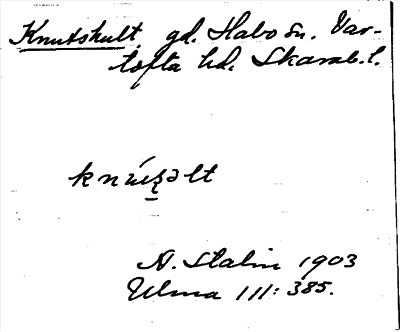 Knutshult, gd. Habo sn. Var-
tofta hd. Skarab. l.
A. Stalin 1903
Ulma 111: 385.